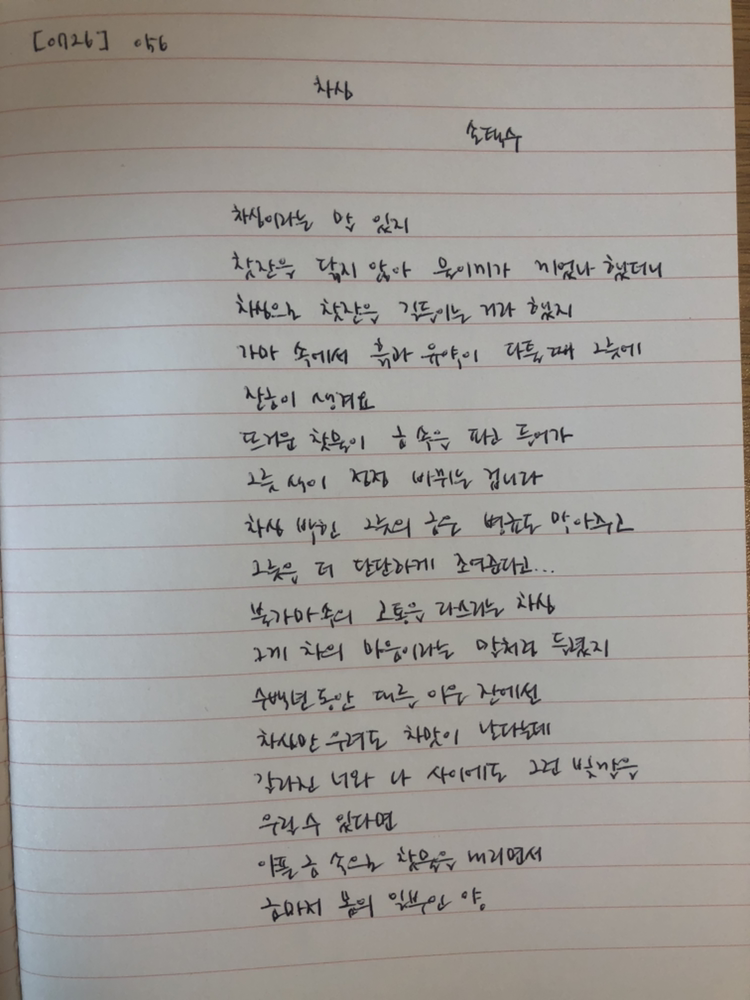 [0726] 056
차심
손택수
차심이라는 말 있지
찻잔을 닦지 않아 물이끼가 끼었나 했더니
차심으로 찻잔을 길들이는 거라 했지
가마 속에서 흙과 유약이 다툴 때 그릇에
잔금이 생겨요
뜨거운 찻물이 금 속을 파고 들어가
그릇 색이 점점 바뀌는 겁니다
차심 박힌 그릇의 금은 병균도 막아주고
그릇을 더 단단하게 조여준다고...
불가마 속의 고통을 다스리는 차심
그게 차의 마음이라는 말처럼 들렸지
수백년 동안 대를 이은 잔에선
차심만 우려도 차맛이 난다는데
갈라진 너와 나 사이에도 그런 빛깔을
우릴 수 있다면
아픈 금 속으로 찻물을 내리면서
금마저 몸의 일부인 양